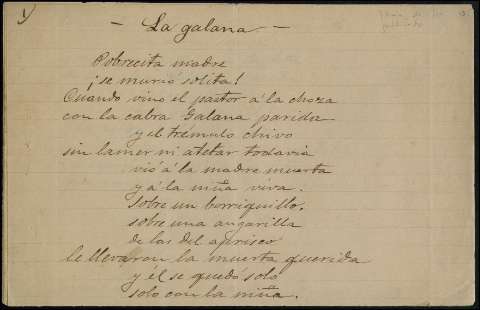 - La galana -
Pobrecita madre
¡se murió solita!
Cuando vino el pastor á la choza
con la cabra Galana parida
y el trémulo chivo
sin lamer ni atetar todavía
vió á la madre muerta
y á la niña viva.
Sobre un borriquillo,
sobre una angarilla
de las del aprisco
le llevaron la muerta querida
y él se quedó solo
solo con la niña.